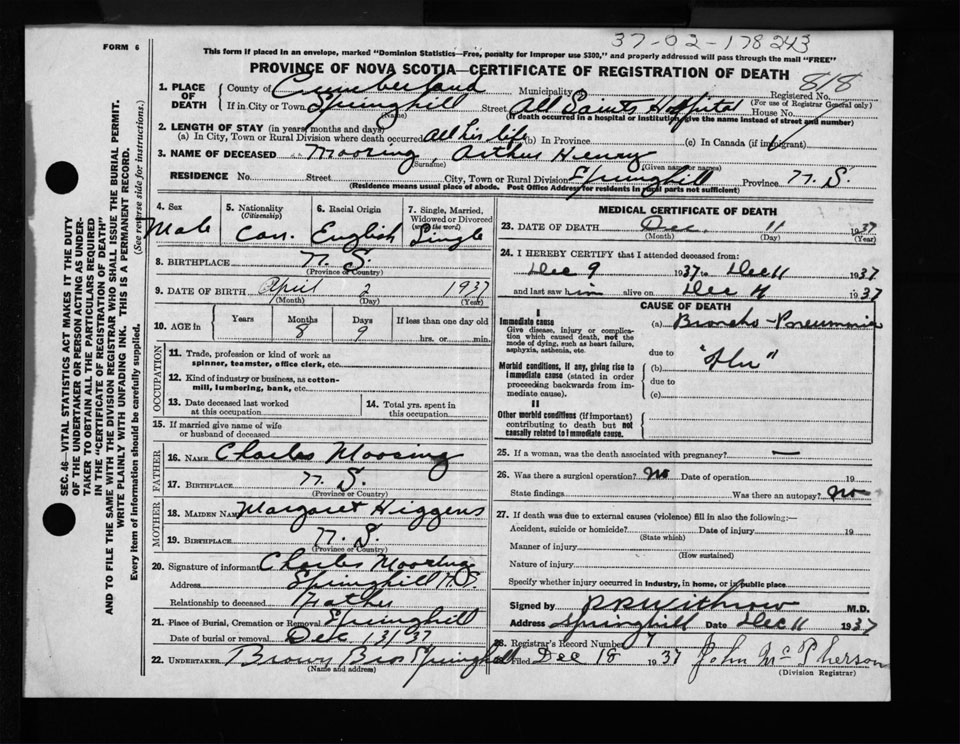 37-02-178243
FORM 6
This form if placed in an envelope, marked "Dominion Statistics—Free, penalty for improper use $300," and properly addressed will pass through the mail "FREE"
PROVINCE OF NOVA SCOTIA—CERTIFICATE OF REGISTRATION OF DEATH
818
1. PLACE OF DEATH
County of Cumberland Municipality Registered No. (For use of Registrar General only)
If in City or Town Springhill (Name) Street All Saints Hospital House No.
(If death occurred in a hospital or institution, give the name instead of street and number)
2. LENGTH OF STAY (in years, months and days)
(a) In City, Town or Rural Division where death occurred All his life (b) In Province (c) In Canada (if immigrant)
3. NAME OF DECEASED Moosing, Arthur Henry
(Surname) (Given name or names)
RESIDENCE No. Street City, Town or Rural Division Springhill Province N. S.
(Residence means usual place of abode. Post Office Address for residents in rural parts not sufficient)
4. Sex
Male
5. Nationality (Citizenship)
Can.
6. Racial Origin
English
7. Single, Married, Widowed or Divorced (write the word)
Single
8. BIRTHPLACE N. S.
(Province or Country)
9. DATE OF BIRTH April 2 1937
(Month) (Day) (Year)
10. AGE in Years Months Days If less than one day old
8 9 hrs. or min.
OCCUPATION
11. Trade, profession or kind of work as spinner, teamster, office clerk, etc.
12. Kind of industry or business, as cotton-mill, lumbering, bank, etc.
13. Date deceased last worked at this occupation
14. Total yrs. spent in this occupation
15. If married give name of wife or husband of deceased
FATHER
16. NAME Charles Moosing
17. BIRTHPLACE N. S.
(Province or Country)
MOTHER
18. MAIDEN NAME Margaret Higgens
19. BIRTHPLACE N. S.
(Province or Country)
20. Signature of informant Charles Moosing
Address Springhill N.S.
Relationship to deceased Father
21. Place of Burial, Cremation or Removal Springhill
Date of burial or removal Dec 13/37
22. UNDERTAKER Brown Bros Springhill
(Name and address)
MEDICAL CERTIFICATE OF DEATH
23. DATE OF DEATH Dec. 11 1937
(Month) (Day) (Year)
24. I HEREBY CERTIFY that I attended deceased from:
Dec 9 1937 to Dec 11 1937
and last saw him alive on Dec 11 1937
CAUSE OF DEATH
I
Immediate cause
Give disease, injury or complication which caused death, not the mode of dying, such as heart failure, asphyxia, asthenia, etc.
(a) Broncho-Pneumonia
due to
Morbid conditions, if any, giving rise to immediate cause (stated in order proceeding backwards from immediate cause).
(b) "Flu"
due to
(c)
II
Other morbid conditions (if important) contributing to death but not causally related to immediate cause.
25. If a woman, was the death associated with pregnancy? —
26. Was there a surgical operation? No Date of operation 19
State findings Was there an autopsy? no
27. If death was due to external causes (violence) fill in also the following:—
Accident, suicide or homicide? Date of injury 19
(State which)
Manner of injury
(How sustained)
Nature of injury
Specify whether injury occurred in industry, in home, or in public place
Signed by Withrow M.D.
Address Springhill Date Dec 11 1937
28. Registrar's Record Number
Filed Dec 18 1937 John McPherson
(Division Registrar)
SEC. 46—VITAL STATISTICS ACT MAKES IT THE DUTY
OF THE UNDERTAKER OR PERSON ACTING AS UNDERTAKER TO OBTAIN ALL THE PARTICULARS REQUIRED
IN THE "CERTIFICATE OF REGISTRATION OF DEATH"
AND TO FILE THE SAME WITH THE DIVISION REGISTRAR WHO SHALL ISSUE THE BURIAL PERMIT.
WRITE PLAINLY WITH UNFADING INK. THIS IS A PERMANENT RECORD.
Every item of information should be carefully supplied. (See reverse side for instructions.)